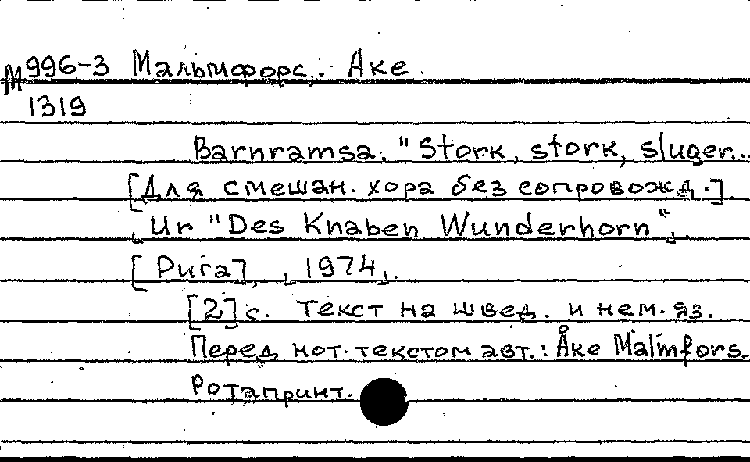 М 996-3 Мальмфорс, Аке.
1319
Barnramsa. "Stork, stork, sluger...
[Для смешан. хора без сопровожд.]
Ur "Des Knaben Wunderhorn".
[Рига], 1974.
[2] с. Текст на швед. и нем. яз.
Перед нот. текстом авт.: Åke Malmfors.
Ротапринт.